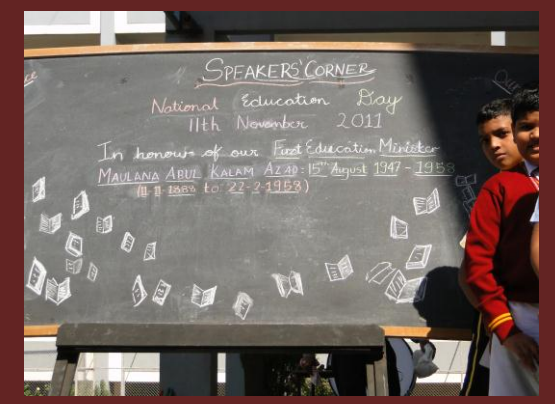 SPEAKERS' CORNER
National Education Day
11th November 2011
In honour of our First Education Minister
MAULANA ABUL KALAM AZAD: 15th August 1947 - 1958
(11-11-1888 to 22-2-1958)